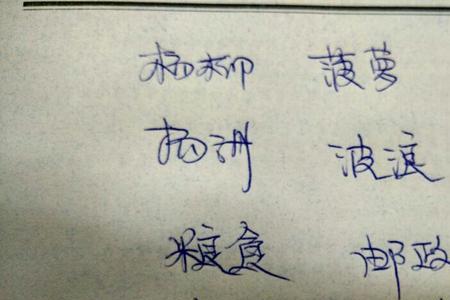 杨柳 菠萝
杨洲 波浪
粮食 邮政